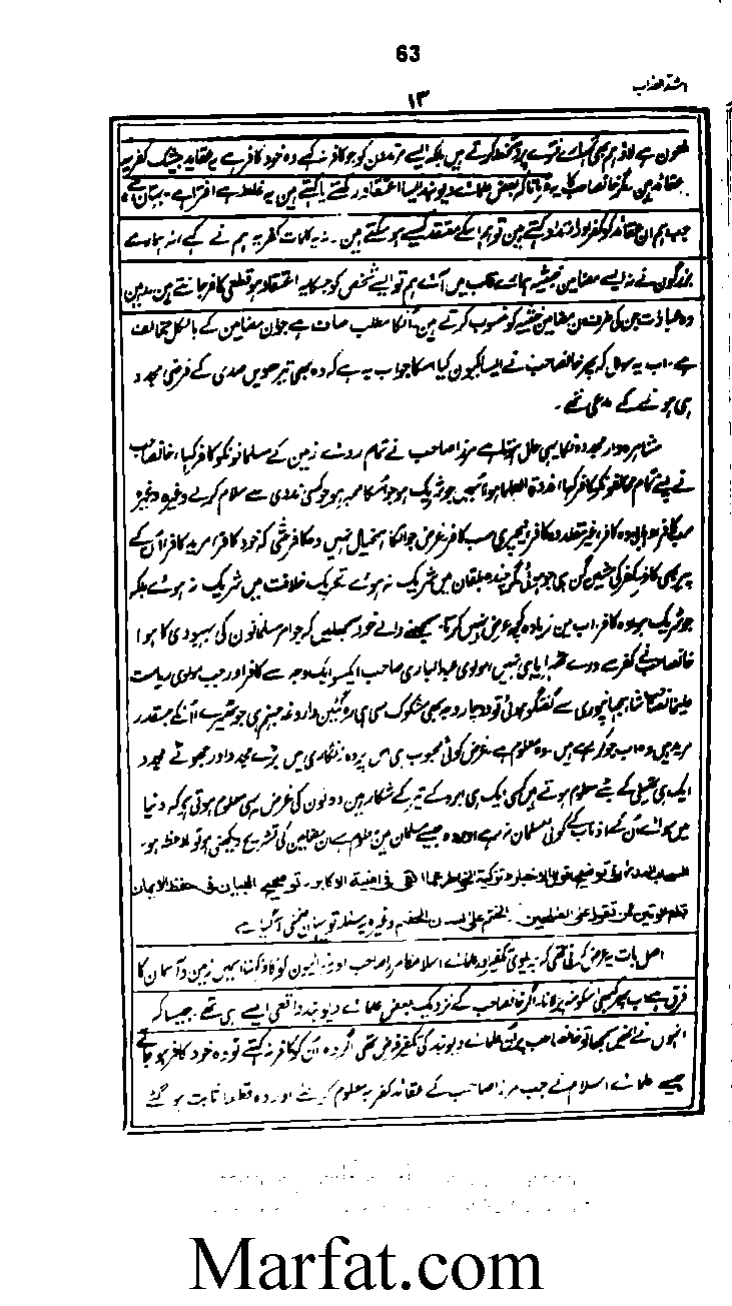 63
اشد العذاب
۱۳
ملعون ہے لاؤ ہم بھی تمہارے فتوے پر دستخط کرتے ہیں بلکہ ایسے مرتدوں کو جو کافر نہ کہے وہ خود کافر ہے یہ عقاید بیشک کفریہ
عقائد ہیں مگر خانصاحب کا یہ فرمانا کہ بعض علمائے دیوبند ایسا اعتقاد رکھتے یا کہتے ہیں یہ غلط ہے افترا ہے بہتان ہے
جب ہم ان عقائد کو کفر و ارتداد کہتے ہیں تو ہم اسکے معتقد کیسے ہو سکتے ہیں۔ نہ یہ کلمات کفریہ ہم نے کہے نہ ہمارے
بزرگوں نے نہ ایسے مضامین خبیثہ ہمارے قلب میں آئے ہم تو ایسے شخص کو جسکا یہ اعتقاد ہو قطعی کافر جانتے ہیں
وہ عبارت جن کی طرف ان مضامین خبیثہ کو منسوب کرتے ہیں انکا مطلب صاف ہے جو ان مضامین کے بالکل مخالف
ہے۔ اب یہ سوال کہ پھر خانصاحب نے ایسا کیوں کیا اسکا جواب یہ ہے کہ وہ بھی تیرھویں صدی کے فرضی مجدد
ہی ہونے کے مدعی تھے۔
مرزا صاحب نے تمام روئے زمین کے مسلمانوں کو کافر کہا، خانصاحب
نے اپنے تمام مخالفوں کو کافر کہا، ندوۃ العلما ہو اسمیں جو شریک ہو جو اسکا ممبر ہو جو کسی ندوی سے سلام کرے وغیرہ وغیرہ
سب کافر، غیر مقلد وہ کافر، نیچری سب کافر، غرض جو انکا ہمخیال نہیں وہ کافر حتی کہ خود کافر، مرید کافر، ان کے
پیر بھی کافر کفر کی مشین گن ہی جو ہوئی مگر چندہ بلقان میں شریک نہ ہوئے تحریک خلافت میں شریک نہ ہوئے بلکہ
جو شریک ہو وہ کافر، اب میں زیادہ کچھ عرض نہیں کرتا۔ سمجھنے والے خود سمجھ لیں کہ جو امر مسلمانوں کی بہبودی کا ہوا
خانصاحب نے کفر سے ورے ٹھہرایا ہی نہیں، مولوی عبد الباری صاحب ایکسو ایک وجہ سے کافر اور جب مولوی ریاست
علی خانصاحب شاہجہانپوری سے گفتگو ہوئی تو دو چار وجہ بھی مشکوک سی ہی رہ گئیں
مرید ہیں وہ اب جو کر رہے ہیں وہ معلوم ہے غرض کوئی محبوب ہی اس پردہ زنگاری میں بڑے مجدد اور چھوٹے مجدد
ایک ہی تھیلی کے بٹے معلوم ہوتے ہیں کسی ایک ہی ابرو کے تیر کے شکار ہیں دونوں کی غرض یہی معلوم ہوتی ہے کہ دنیا
میں سوائے ان کے اذناب کے کوئی مسلمان نہ رہے اور وہ جیسے مسلمان ہیں معلوم ہے ان مضامین کی تشریح دیکھنی ہو تو ملاحظہ ہو۔
السحاب المدرار فی توضیح اقوال الاخیار، تزکیۃ الخواطر عما القی فی امنیۃ الاکابر، توضیح البیان فی حفظ الایمان
الختم علی لسان الخصم وغیرہ
اصل بات یہ عرض کرنی تھی کہ بریلوی تکفیر اور علمائے اسلام کا مرزا صاحب اور مرزائیوں کو کافر کہنا اسمیں زمین و آسمان کا
فرق ہے اگر خانصاحب کے نزدیک بعض علمائے دیوبند واقعی ایسے ہی تھے۔ جیسا کہ
انہوں نے انہیں سمجھا تو خانصاحب پر ان علمائے دیوبند کی تکفیر فرض تھی اگر وہ ان کو کافر نہ کہتے تو وہ خود کافر ہو جاتے
جیسے علمائے اسلام نے جب مرزا صاحب کے عقائد کفریہ معلوم کر لئے اور وہ قطعاً ثابت ہو گئے
Marfat.com